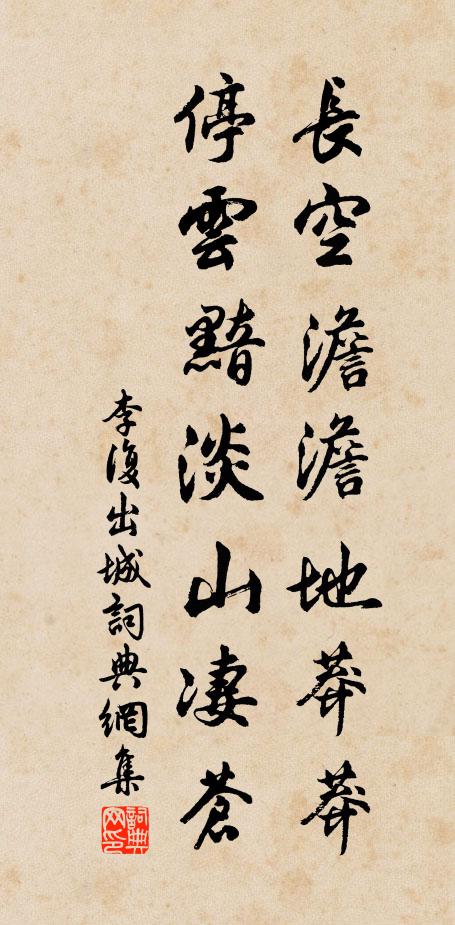 長空澹澹地莽莽
停雲黯淡山淒蒼
李復出城詞典網集
詞典網印